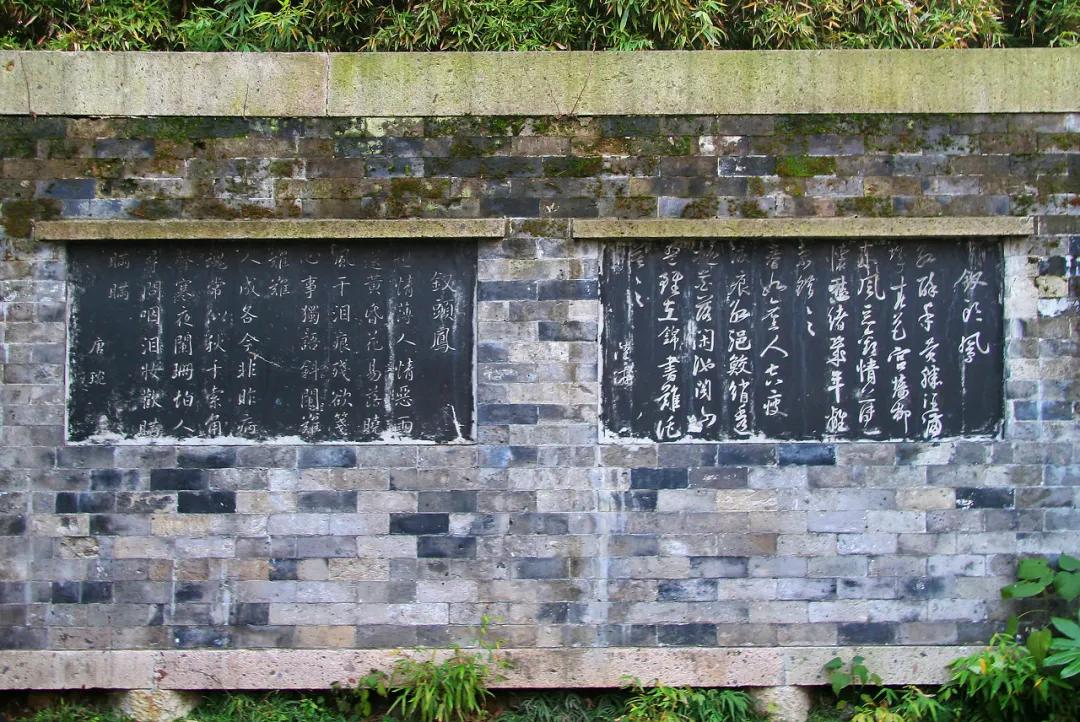 釵頭鳳
紅酥手黃縢酒滿
城春色宮牆柳
東風惡歡情薄一
懷愁緒幾年離
索錯〻
春如舊人空瘦
淚痕紅浥鮫綃透
桃花落閑池閣山
盟雖在錦書難托
莫〻〻
陸游
釵頭鳳
世情薄人情惡雨
送黃昏花易落曉
風干泪痕殘欲箋
心事獨語斜闌難
難難
人成各今非昨病
魂常似秋千索角
聲寒夜闌珊怕人
尋問咽泪妝歡瞞
瞞瞞
唐琬